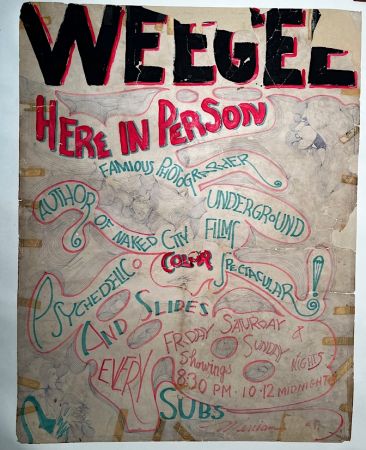 WEEGEE
HERE IN PERSON
FAMIOUS PHOTOGRAPHER
AUTHOR OF NAKED CITY
UNDERGROUND FILMS
PSYCHEDELIC COLOR SPECTACULAR!
AND SLIDES
EVERY FRIDAY SATURDAY &
SUNDAY NIGHTS
Showings
8:30 PM · 10 · 12 MIDNIGHT
SUBS